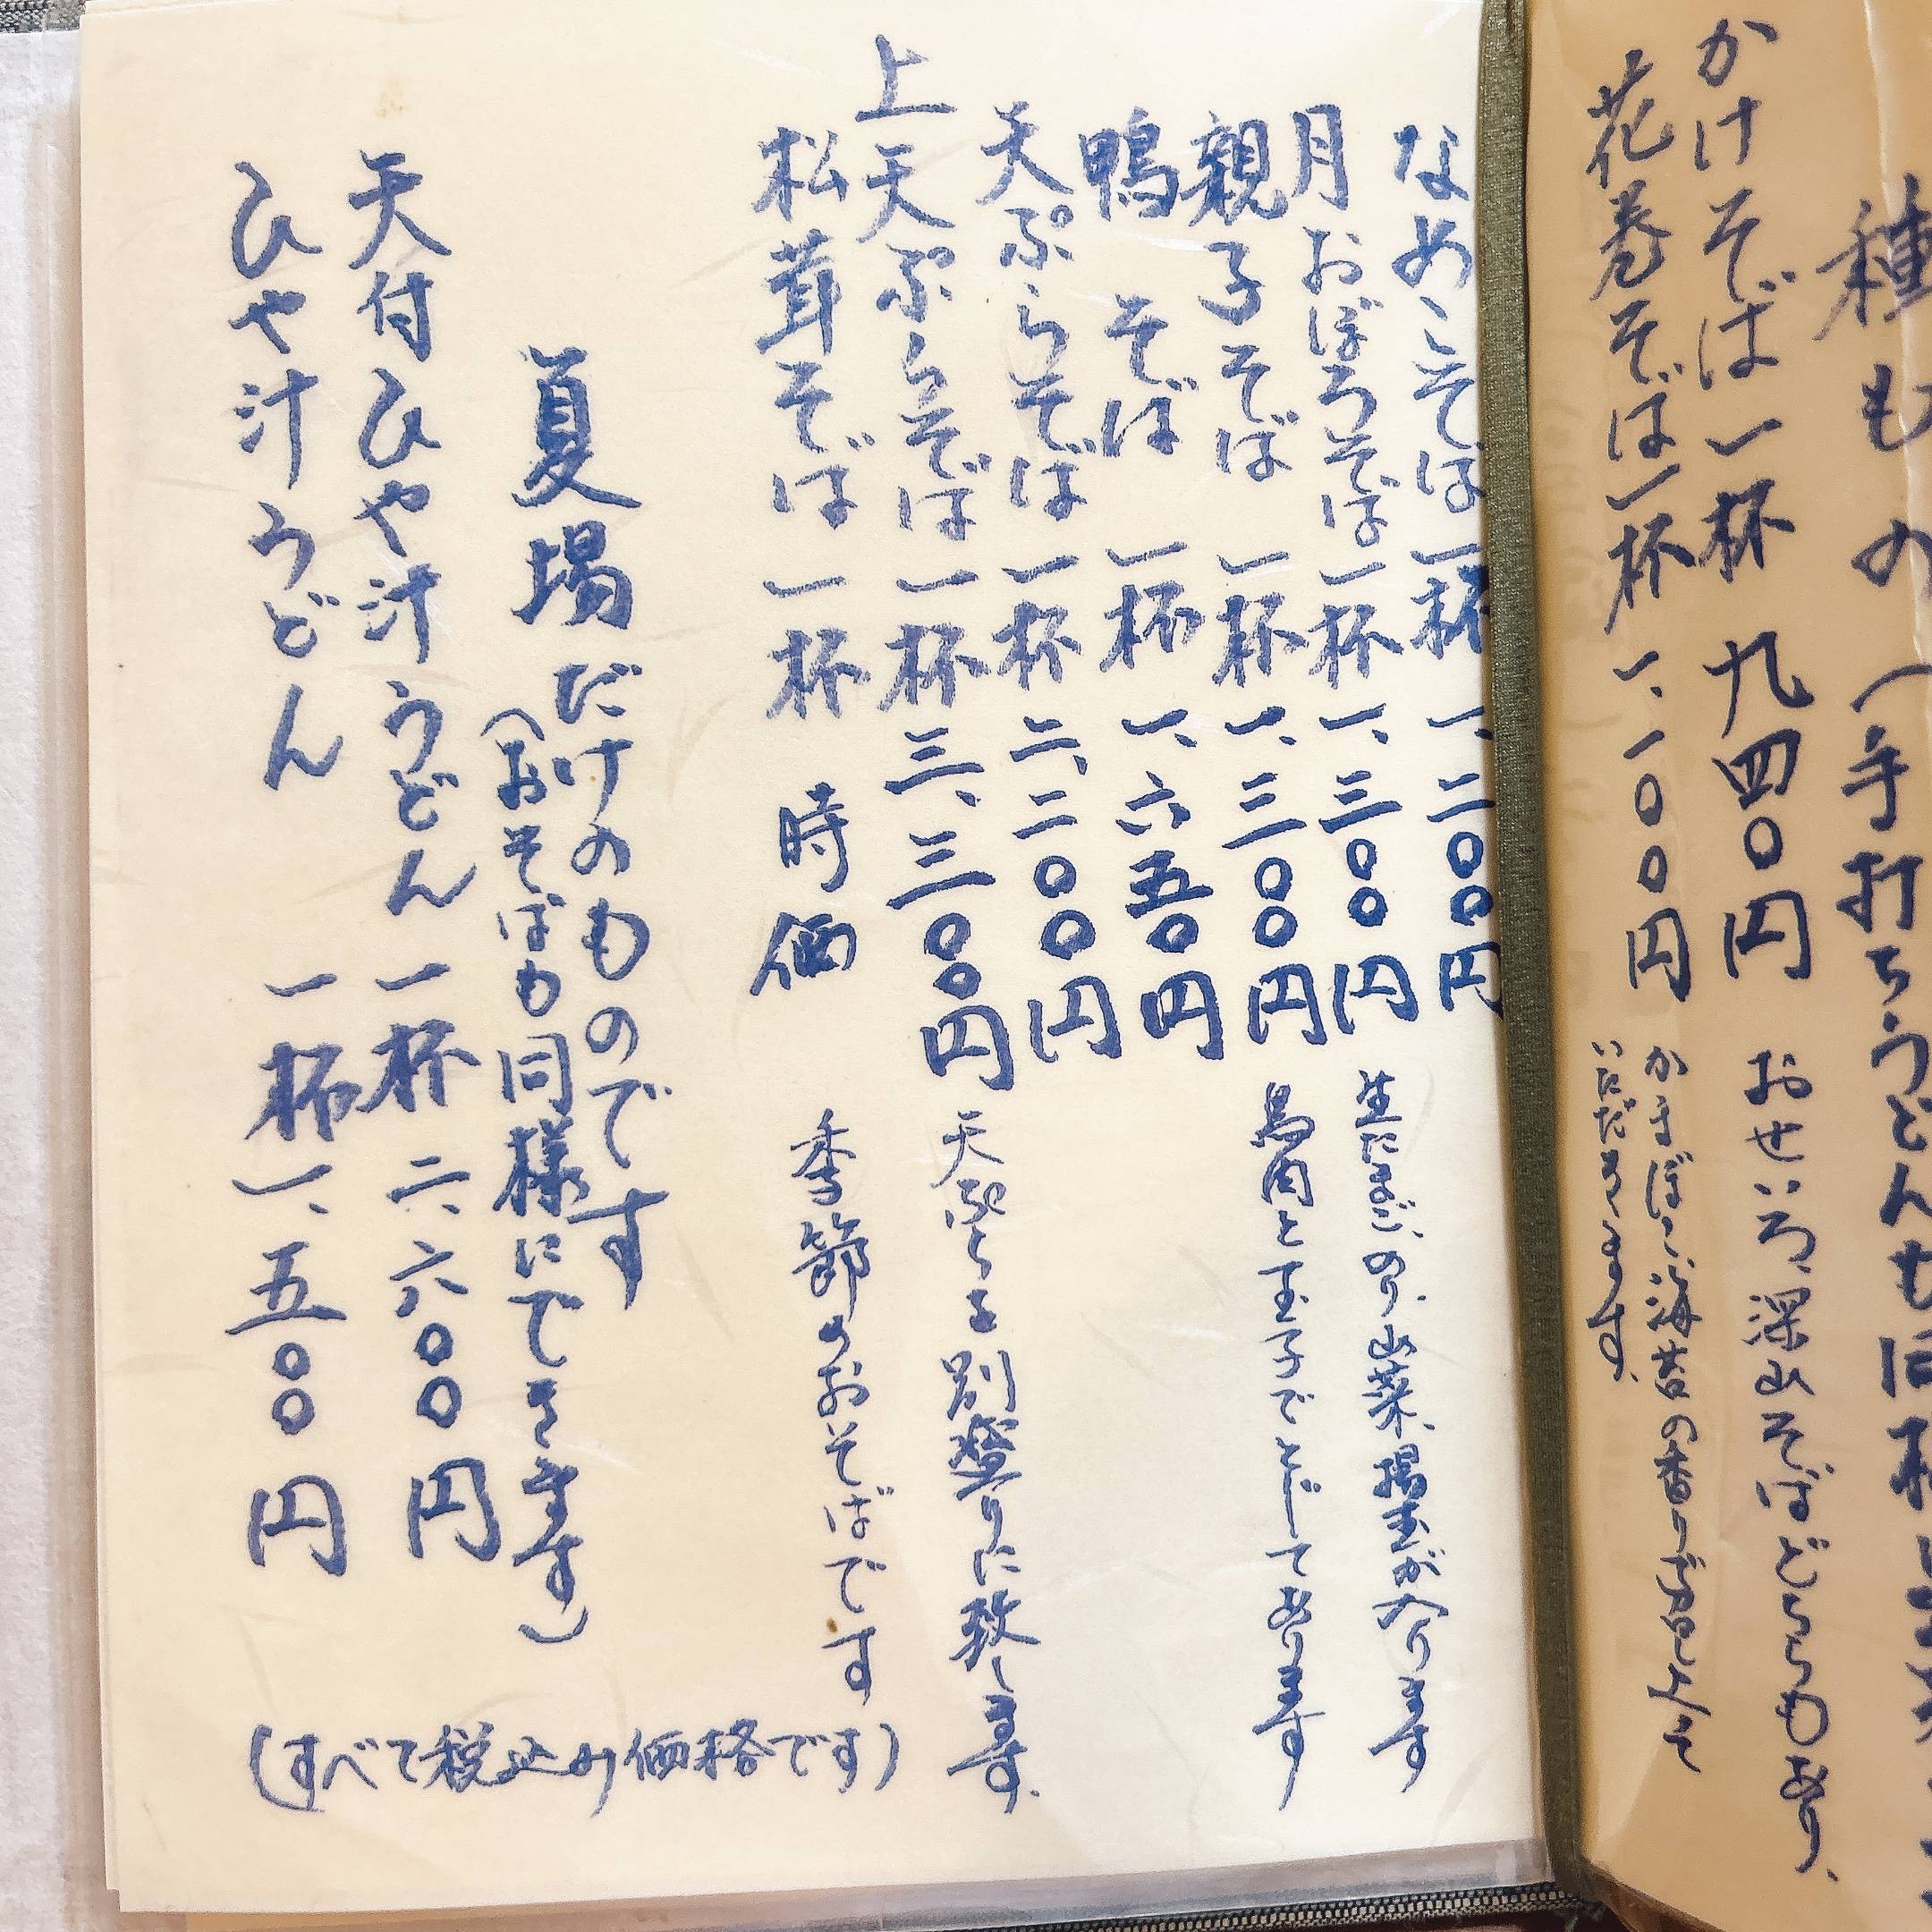 種もの(手打ちうどんも同様
かけそば一杯 九四〇円 おせいろ、深山そばどちらもあり、
花巻そば一杯 一、一〇〇円 かまぼこ、海苔の香りがたえて
いただきます。
なめこそば一杯 一、二〇〇円
月おぼろそば一杯 一、三〇〇円 生たまご、のり、山菜、揚玉が入ります
親子そば 一杯 一、三〇〇円 鳥肉と玉子でとじてあります
鴨 そば 一杯 一、六五〇円
天ぷらそば 一杯 二、二〇〇円
上天ぷらそば 一杯 三、三〇〇円 天ぷらを別盛りに致します。
松茸そば 一杯 時価 季節のおそばです
夏場だけのものです
(おそばも同様にできます)
天付ひや汁うどん 一杯 二、六〇〇円
ひや汁うどん 一杯 一、五〇〇円
(すべて税込み価格です)